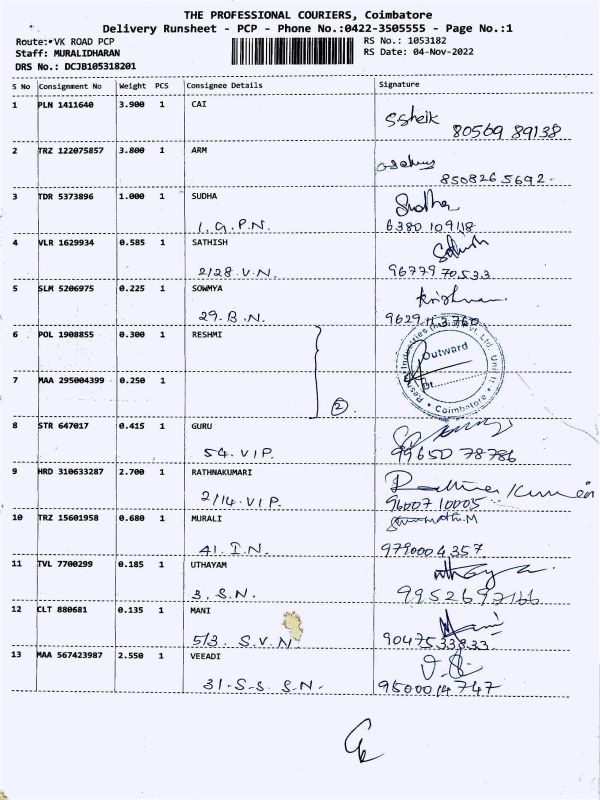 THE PROFESSIONAL COURIERS, Coimbatore
Delivery Runsheet - PCP - Phone No.:0422-3505555 - Page No.:1
Route: VK ROAD PCP RS No.: 1053182
Staff: MURALIDHARAN RS Date: 04-Nov-2022
DRS No.: DCJB105318201
S No Consignment No Weight PCS Consignee Details Signature
1 PLN 1411640 3.900 1 CAI
Ssheik
80569 89138
2 TRZ 122075857 3.800 1 ARM
850826 5692
3 TDR 5373896 1.000 1 SUDHA Sudha
1. G.P.N. 6380 109118
4 VLR 1629934 0.585 1 SATHISH Sathish
2/28 V.N. 96779 70533
5 SLM 5206975 0.225 1 SOWMYA Krishnan
29. B.N. 9629113760
6 POL 1908855 0.300 1 RESHMI
Outward
7 MAA 295004399 0.250 1
Dt.
2 Coimbatore
8 STR 647017 0.415 1 GURU
54. V.I.P. 99650 78786
9 HRD 310633287 2.700 1 RATHNAKUMARI
2/14. V.I.P. 96007 10005
10 TRZ 15601958 0.680 1 MURALI
41. I.N. 9790004357
11 TVL 7700299 0.185 1 UTHAYAM
3. S.N. 9952697166
12 CLT 880681 0.135 1 MANI Mani
5/3. S.V.N 9047533833
13 MAA 567423987 2.550 1 VEEADI
31. S.S. S.N. 9500014747